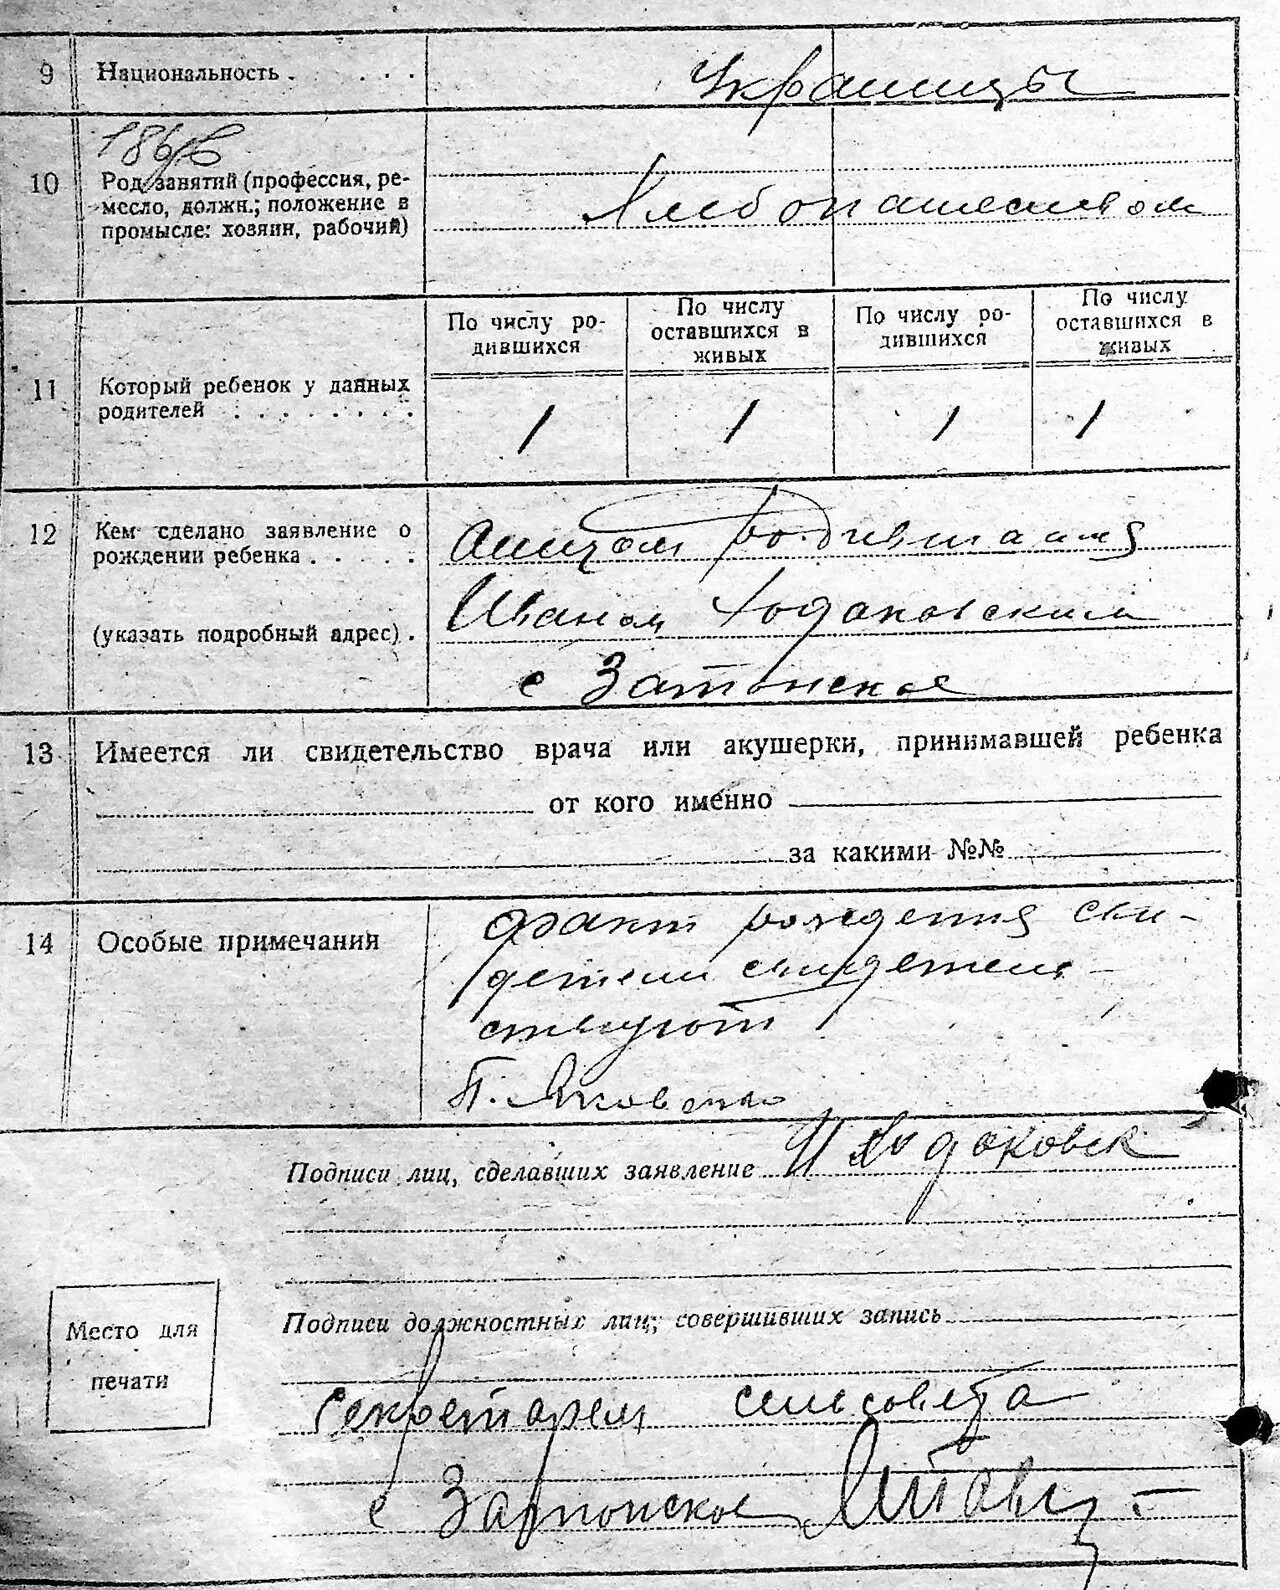 9 Национальность . . . . . Украинцы
186/в
10 Род занятий (профессия, ре-
месло, должн.; положение в
промысле: хозяин, рабочий)
Хлебопашеством
По числу ро-
дившихся
По числу
оставшихся в
живых
По числу ро-
дившихся
По числу
оставшихся в
живых
11 Который ребенок у данных
родителей . . . . . . . .
1 1 1 1
12 Кем сделано заявление о
рождении ребенка . . . . .
(указать подробный адрес) .
отцом родившаяся
Иваном Ходаковским
с Затонское
13 Имеется ли свидетельство врача или акушерки, принимавшей ребенка
от кого именно
за какими №№
14 Особые примечания
факт рождения сви-
детели свидетель-
ствуют
П. Яковенко
Подписи лиц, сделавших заявление И Ходаковск
Подписи должностных лиц, совершивших запись
Место для
печати
Секретарем сельсовета
с Затонское